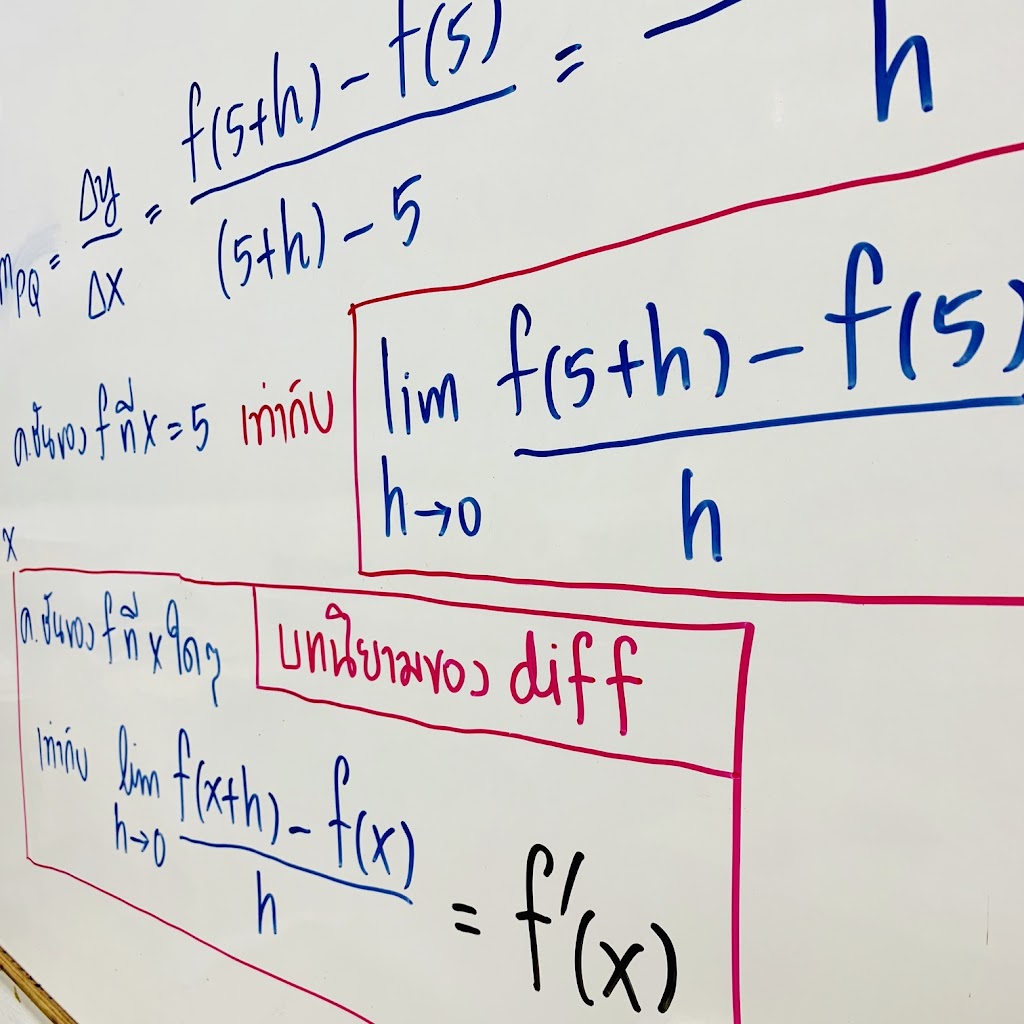 m_PQ = Δy/Δx = (f(5+h) − f(5))/((5+h) − 5) = /h
ค.ชันของ f ที่ x = 5 เท่ากับ lim h→0 (f(5+h) − f(5))/h
x
ค.ชันของ f ที่ x ใดๆ
บทนิยามของ diff
เท่ากับ lim h→0 (f(x+h) − f(x))/h = f′(x)